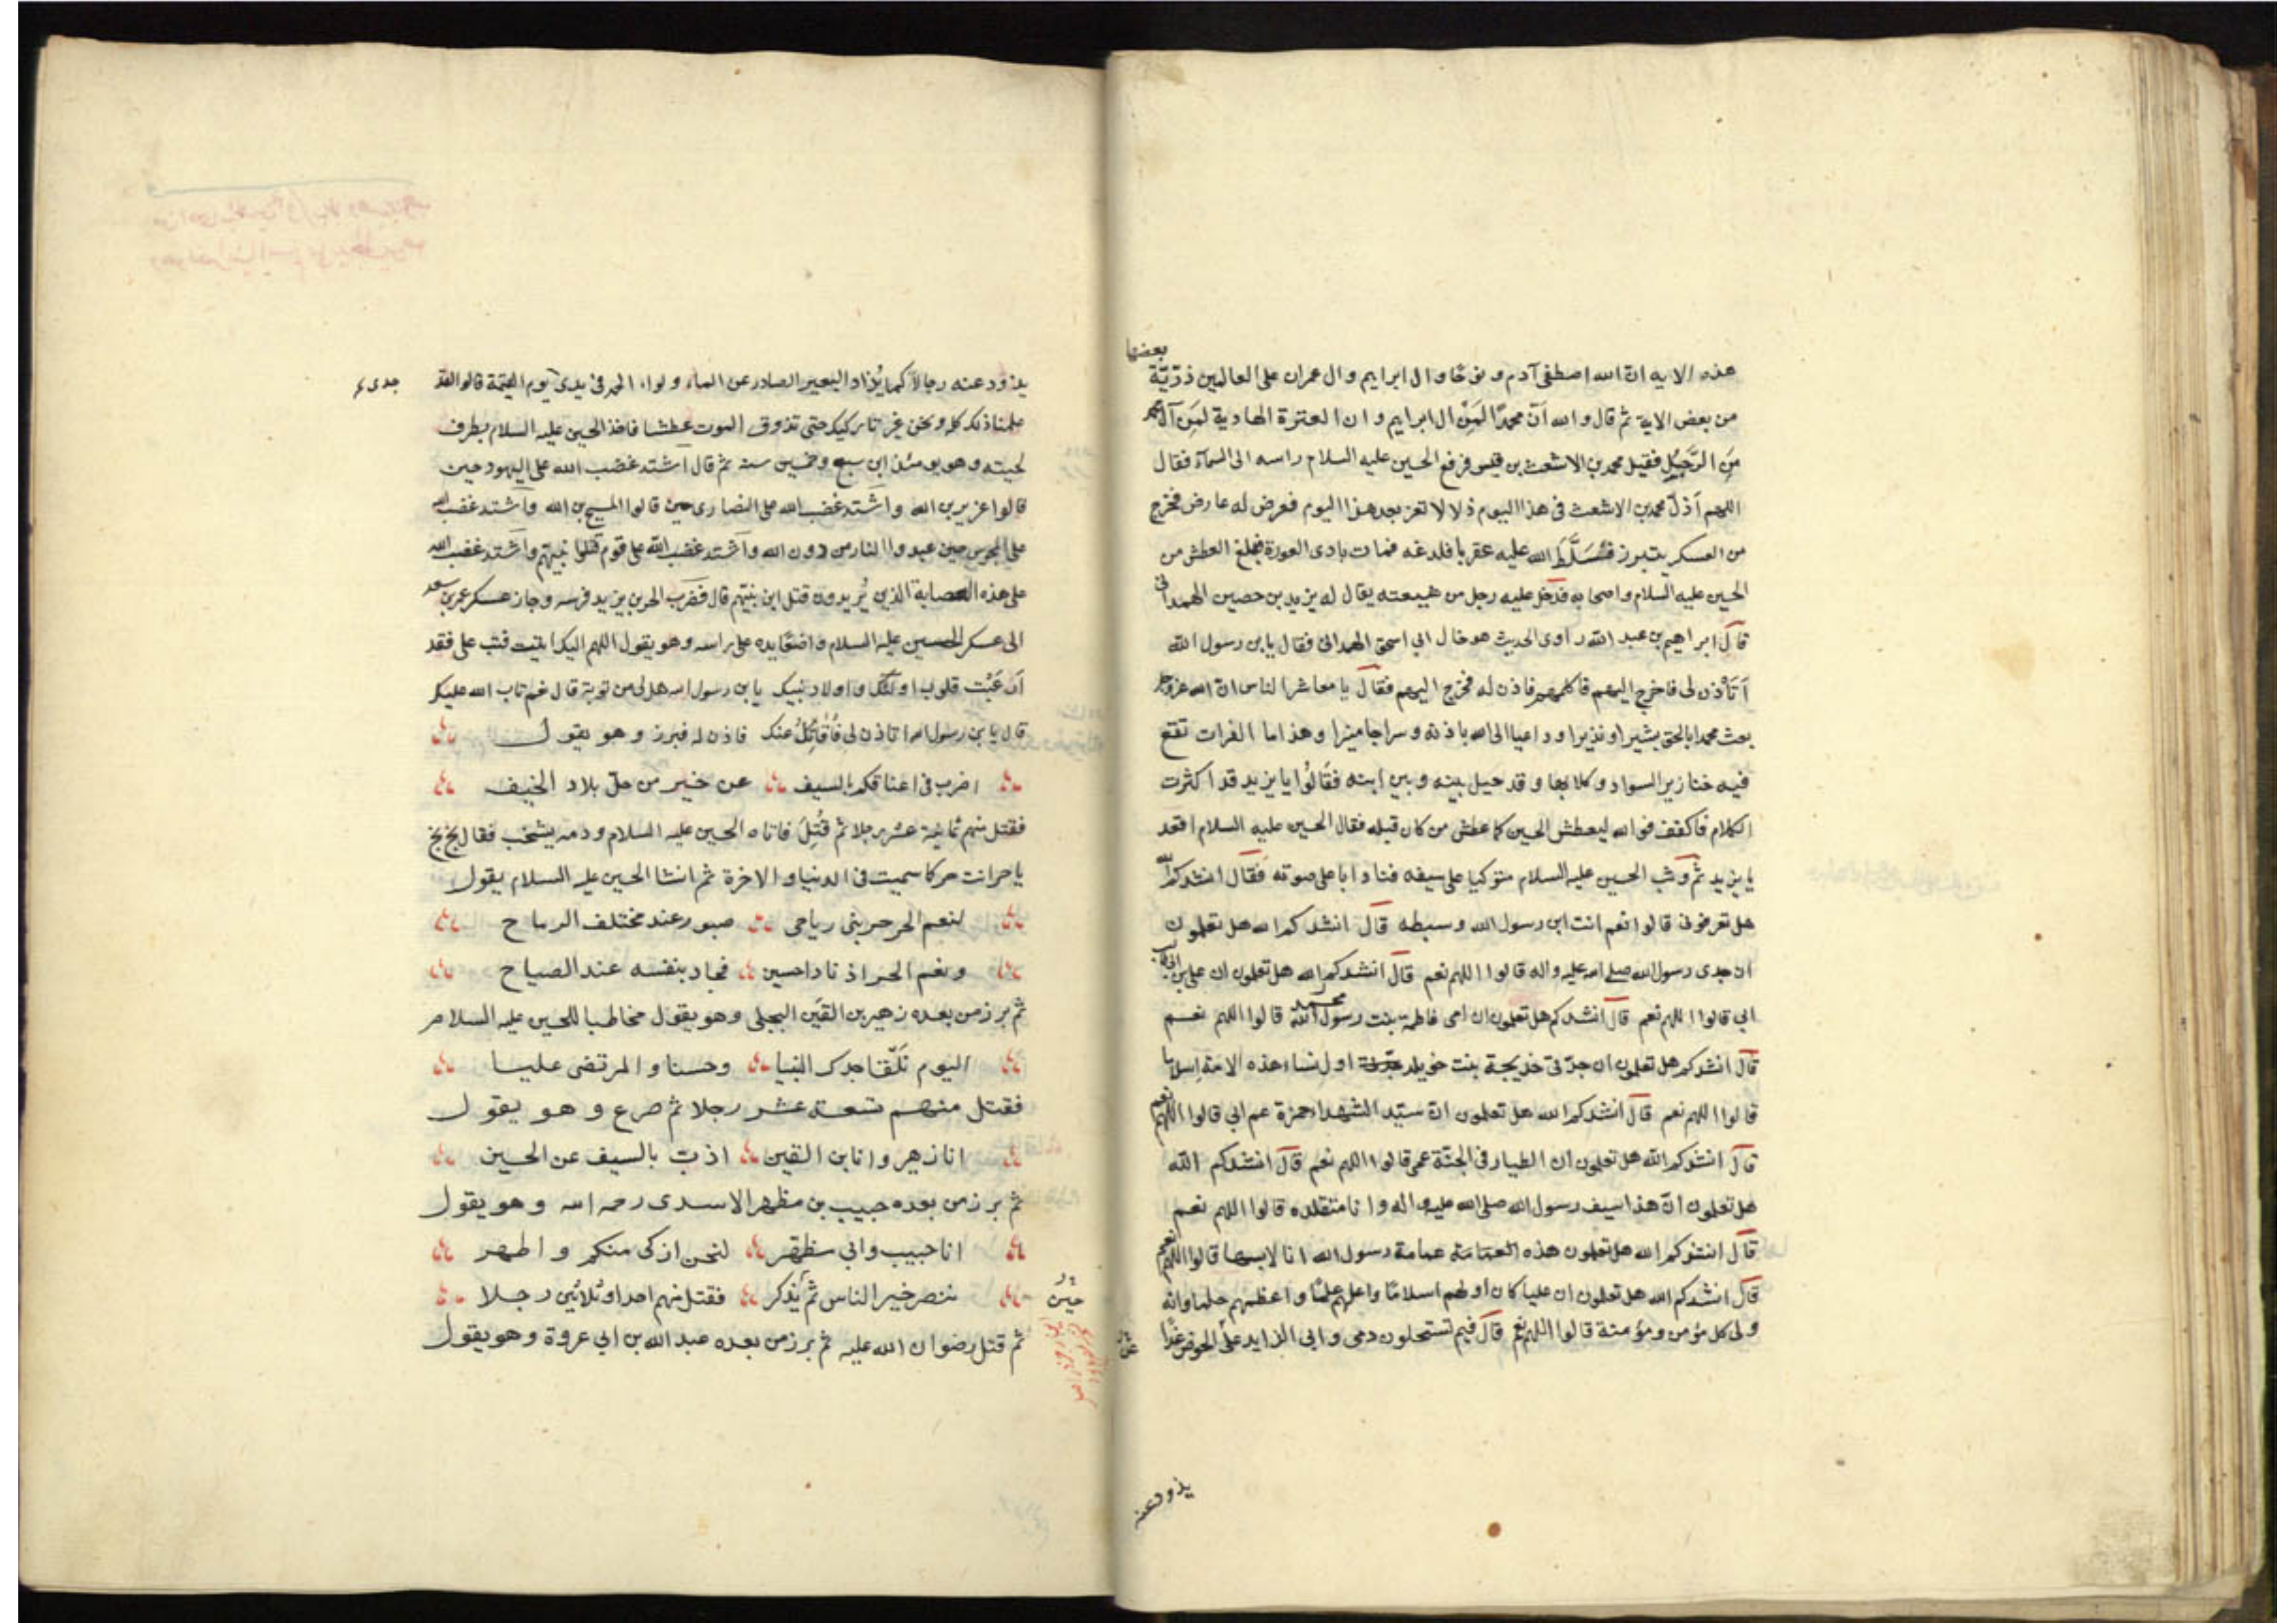 بعضها
هذه الاية ان الله اصطفى آدم ونوحا وال ابراهيم وال عمران على العالمين ذريّة
من بعض الاية ثم قال والله انّ محمدًا لمَِن ال ابراهيم وان العترة الهادية لمَِن آل محمد
مَنِ الرَّجُلُ فقيل محمد بن الاشعث بن قيس فرفع الحسين عليه السلام راسه الى السماء فقال
اللهم أذلّ محمد بن الاشعث في هذا اليوم ذلا لا تعزه بعد هذا اليوم فعرض له عارض فخرج
من العسكر يتبرز فسَلَّطَ الله عليه عقربا فلدغه فمات بادى العورة فبلغ العطش من
الحسين عليه السلام واصحابه فدخل عليه رجل من شيعته يقال له يزيد بن حصين الهمدانى
قال ابراهيم بن عبد الله راوى الحديث هو خال ابي اسحق الهمدانى فقال يابن رسول الله
أتأذن لى فاخرج اليهم فاكلمهم فاذن له فخرج اليهم فقال يا معاشر الناس ان الله عز وجل
بعث محمدا بالحق بشيرا ونذيرا وداعيا الى الله باذنه وسراجا منيرا وهذا ما الفرات تقع
فيه خنازير السواد وكلابها وقد حيل بينه وبين ابنه فقَالُوا يا يزيد قد اكثرت
الكلام فاكفف فوالله ليعطش الحسين كما عطش من كان قبله فقال الحسين عليه السلام اقعد
يا يزيد ثم وثب الحسين عليه السلام متوكيا على سيفه فنادا باعلى صوته فقال انشدكم الله
هل تعرفونى قالوا نعم انت ابن رسول الله وسبطه قال انشدكم الله هل تعلمون
ان جدى رسول الله صلى الله عليه واله قالوا اللهم نعم قال انشدكم الله هل تعلمون ان على بن ابى طالب
ابي قالوا اللهم نعم قال انشدكم هل تعلمون ان امى فاطمة بنت محمد رسول الله قالوا اللهم نعم
قال انشدكم هل تعلمون ان جدتى خديجة بنت خويلد اول نساء هذه الامة اسلاما
قالوا اللهم نعم قال انشدكم الله هل تعلمون ان سيّد الشهداء حمزة عم ابي قالوا اللهم نعم
قال انشدكم الله هل تعلمون ان الطيار فى الجنّة عمى قالوا اللهم نعم قال انشدكم الله
هل تعلمون انّ هذا سيف رسول الله صلى الله عليه واله وانا متقلده قالوا اللهم نعم
قال انشدكم الله هل تعلمون هذه العمامة عمامة رسول الله انا لابسها قالوا اللهم نعم
قال انشدكم الله هل تعلمون ان عليا كان اولهم اسلامًا واعلمهم علمًا واعظمهم حلما وانه
ولى كل مؤمن ومؤمنة قالوا اللهم نعم قال فبم تستحلون دمى وابى الذايد على الحوض غدًا
يذود عنه
يذود عنه رجالا كما يُذاد البعير الصادر عن الماء ولواء الحمد فى يدى يوم القيمة قالوا لقد
جدى
علمنا ذلك كله ونحن غير تاركيك حتى تذوق الموت عطشا فاخذ الحسين عليه السلام بطرف
لحيته وهو يومئذ ابن سبع وخمسين سنة ثم قال اشتد غضب الله على اليهود حين
قالوا عزير بن الله واشتد غضب الله على النصارى حين قالوا المسيح بن الله واشتد غضب الله
على المجوس حين عبدوا النار من دون الله واشتد غضب الله على قوم قتلوا نبيّهم واشتد غضب الله
على هذه العصابة الذين يُريدون قتل ابن نبيّهم قال فضرب الحر بن يزيد فرسه وجاز عسكر عمر بن سعد
الى عسكر الحسين عليه السلام واضعًا يده على راسه وهو يقول اللهم اليك انبت فتب على فقد
أرعبت قلوب اوليآئك واولاد نبيك يابن رسول الله هل لى من توبة قال نعم تاب الله عليك
قال يابن رسول الله اتاذن لى فأقاتلُ عنك فاذن له فبرز وهو يقول
اضرب فى اعناقكم بالسيف عن خير من حلّ بلاد الخيف
فقتل منهم ثمانية عشر رجلا ثم قُتِلَ فاتاه الحسين عليه السلام ودمه يشخب فقال بخ بخ
يا حر انت حر كما سميت فى الدنيا والاخرة ثم انشا الحسين عليه السلام يقول
لنعم الحر حر بنى رياحى صبور عند مختلف الرماح
ونعم الحر اذ نادا حسين فجاد بنفسه عند الصياح
ثم برز من بعده زهير بن القين البجلى وهو يقول مخاطبا للحسين عليه السلام
اليوم نلقا جدك النبيا وحسنا والمرتضى عليا
فقتل منهم تسعة عشر رجلا ثم صرع وهو يقول
انا زهير وانا بن القين اذب بالسيف عن الحسين
ثم برز من بعده حبيب بن مظهر الاسدى رحمه الله وهو يقول
انا حبيب وابي مظهر لنحن ازكى منكم واطهر
ننصر خير الناس ثم يُذكر فقتل منهم احدا وثلاثين رجلا
حين
ثم قتل رضوان الله عليه ثم برز من بعده عبد الله بن ابي عروة وهو يقول